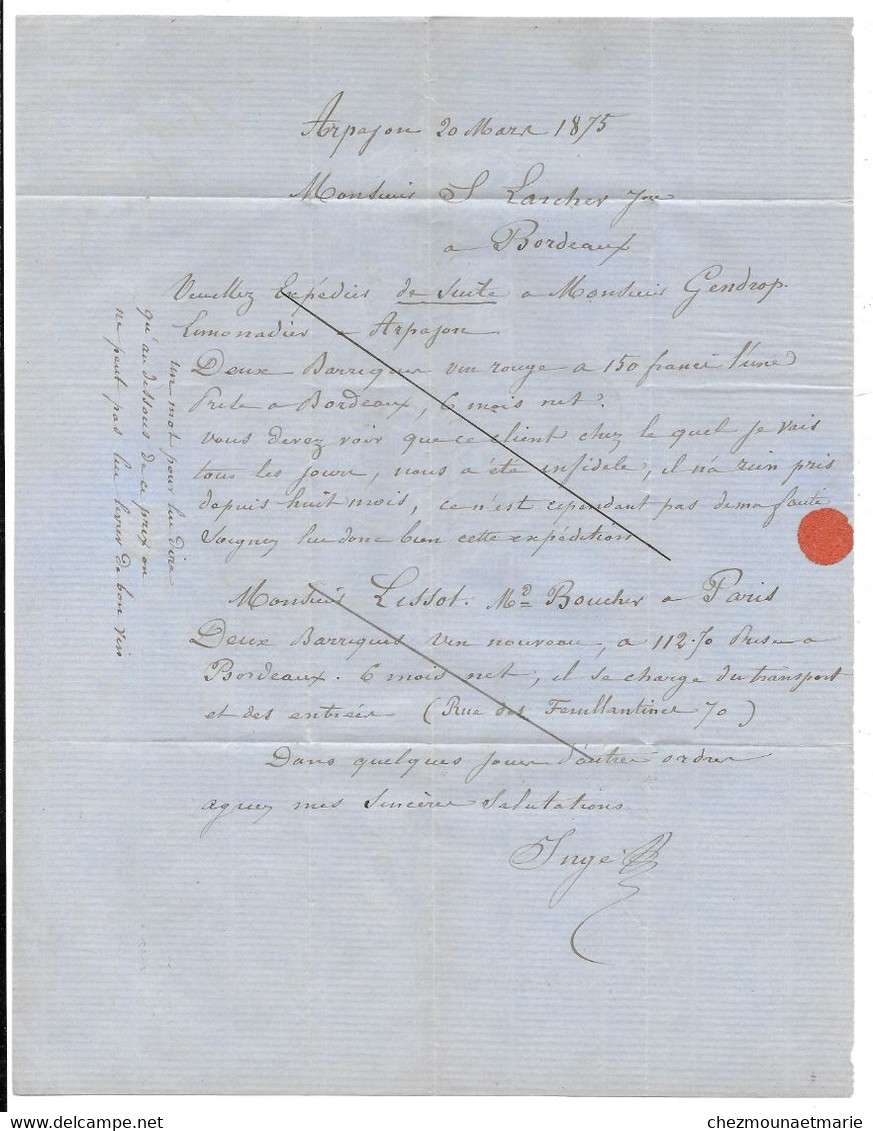 Arpajon 20 Mars 1875
Monsieur S Larcher Jne
a Bordeaux
Veuillez Expédier de Suite a Monsieur Gendrop.
Limonadier a Arpajon
Deux Barriques vin rouge a 150 francs l'une
Prise a Bordeaux, 6 mois net.
vous devez voir que ce client chez le quel je vais
tous les jours, nous a été infidele, il n'a rien pris
depuis huit mois, ce n'est cependant pas de ma faute
Soignez lui donc bien cette expédition
Monsieur Lissot. Md Boucher a Paris
Deux Barriques vin nouveau, a 112.70 Prise a
Bordeaux. 6 mois net, il se charge du transport
et des entrées (Rue des Feuillantines 70)
Dans quelques jours d'autres ordres
agreez mes Sincères Salutations
Ingé
un mot pour lui dire
qu'au dessous de ce prix on
ne peut pas lui livrer de bon vin
chezmounaetmarie